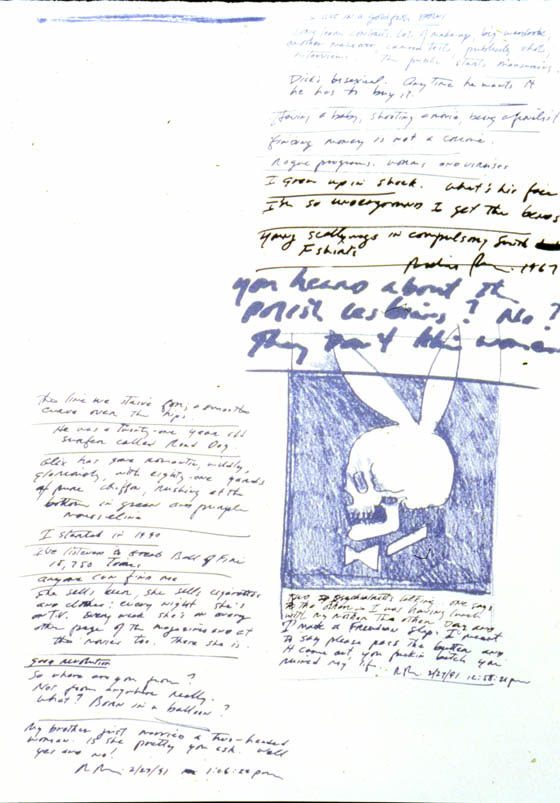 live in a goldfish bowl
long term contract. lot of make-up, big wardrobe,
another makeover, camera tests, publicity shots
interviews. The public starts
Dick's bisexual. Anytime he wants it
he has to buy it.
Having a baby, shooting a movie, being a finalist
finding money is not a crime.
Rogue programs. worms and viruses
I grew up in shock. what's his face
I'm so underground I get the bends
young scallywags in compulsory Smith
T shirts
1967
you heard about the
polish lesbians? No?
They don't like women
The line we
curve over the hips.
He was a twenty-one year old
surfer called Road Dog
Alix has gone romantic, wildly,
gloriously, with eighty-one yards
of pure chiffon, rushing at the
bottom in green and purple
mousseline
I started in 1990
I've listened to Great Balls of Fire
18,750 times.
anyone can find me
She sells beer, she sells cigarettes
and clothes: every night she's
on T.V. Every week she's on every
other page of the magazines and at
the movies too. There she is.
good revolution
So where are you from?
Not from anywhere really.
What? Born in a balloon?
My brother just married a two-headed
woman. is she pretty you ask. Well
yes and no!
2/27/91 1:06:22 pm
Two psychiatrists talking, one says
to the other - I was having lunch
with my mother the other day and
I made a Freudian slip. I meant
to say please pass the butter and
it came out you fuckin bitch you
ruined my life.
2/27/91 12:58:21 pm